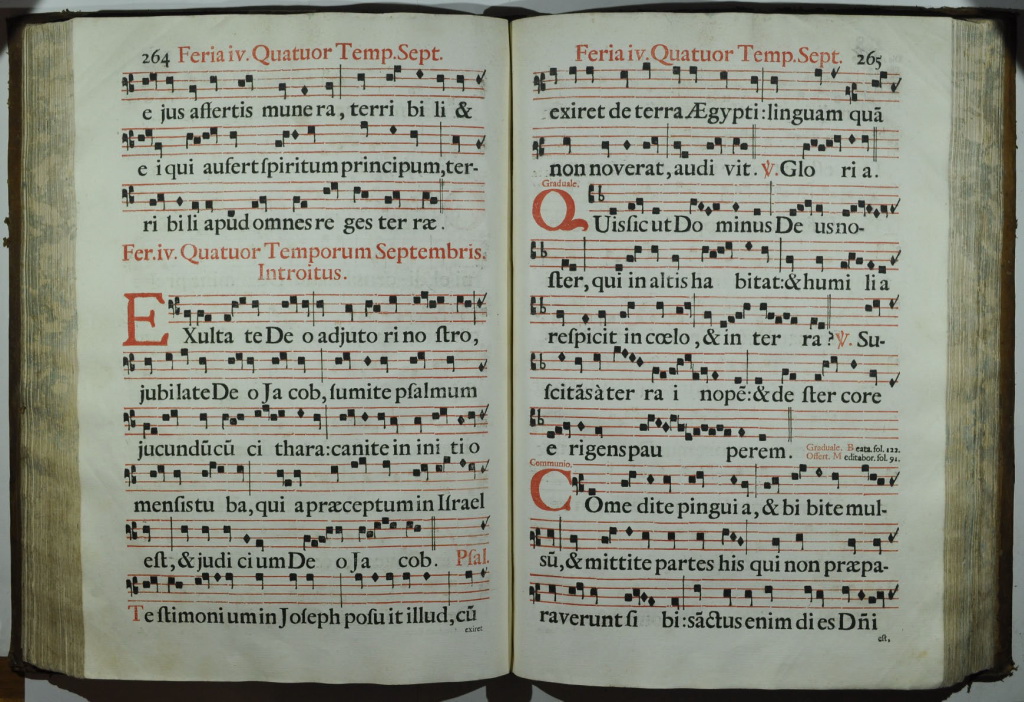 264 Feria iv. Quatuor Temp. Sept.
e jus aſſertis mune ra, terri bi li &
e i qui aufert ſpiritum principum, ter-
ri bi li apud omnes re ges ter ræ.
Fer. iv. Quatuor Temporum Septembris.
Introitus.
EXulta te De o adjuto ri no ſtro,
jubilate De o Ja cob, ſumite pſalmum
jucundũ cũ ci thara: canite in ini ti o
menſis tu ba, qui a præceptum in Iſrael
eſt, & judi cium De o Ja cob. Pſal.
Te ſtimoni um in Joſeph poſu it illud, cũ
exiret
Feria iv. Quatuor Temp. Sept. 265
exiret de terra Ægypti: linguam quã
non noverat, audi vit. ℣. Glo ri a.
Graduale.
QUis ſic ut Do minus De us no-
ſter, qui in altis ha bitat: & humi li a
reſpicit in cœlo, & in ter ra? ℣. Su-
ſcitãs à ter ra i nopẽ: & de ſter core
e rigens pau perem.
Graduale. Beata. fol. 122.
Offert. Meditabor. fol. 91.
Communio.
COme dite pingui a, & bi bite mul-
sũ, & mittite partes his qui non præpa-
raverunt ſi bi: sãctus enim di es Dñi
eſt,